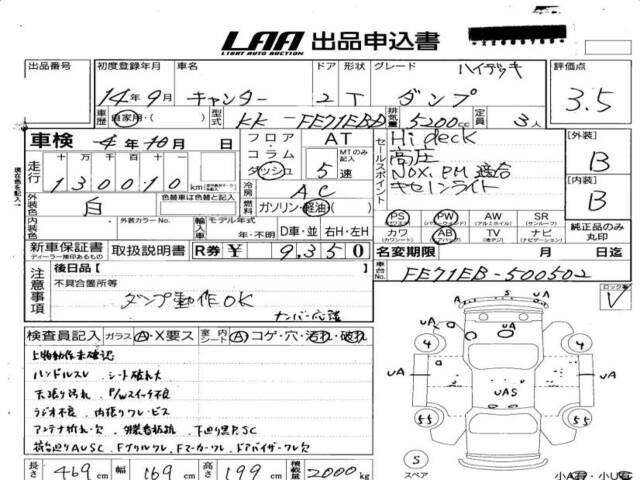 LAA 出品申込書
LIGHT AUTO AUCTION
出品番号 初度登録年月 車名 ドア 形状 グレード ハイデッキ 評価点
14年9月 キャンター 2 T ダンプ 3.5
車歴 自家用( ) 型式 KK-FE71EBD 排気量 5200cc 定員 3人
車検 4年10月 日
フロア・コラム・ダッシュ AT MTのみ記入 5速
走行 十万千百十 130010km
冷房 AC
燃料 ガソリン・軽油( )
外装色 白 色替車は色替と記入
内装色 外装カラーNo. 内装カラーNo.
輸入車 モデル年式 年・不明 D車・並 右H・左H
セールスポイント
Hi deck
高圧
NOX.PM適合
キセノンライト
【外装】 B
【内装】 B
PS PW AW SR
(パワーウィンドウ) (アルミホイル) (サンルーフ)
カワ AB TV ナビ
(カワシート) (エアバック) (地デジ) (ナビゲーション)
純正品のみ丸印
新車保証書 取扱説明書 R券 ¥ 9,350
ディーラー捺印あるもの
名変期限 月 日迄
車台No. FE71EB-500502
注意事項
後日品【 】
不具合箇所等
ダンプ動作OK
ナンバー応談
ロックNo. V
検査員記入 ガラス A・X要ス 室内 シート A コゲ・穴・汚れ・破れ
上物動作未確認
ハンドルスレ シート破れ大
天張り汚れ P/Wスイッチ不良
ラジオ不良 内張りワレ・ビス
アンテナ折れ・欠
荷台廻りAUSC Fグリルワレ Fマーカーワレ ドアバイザーワレ欠
長さ 469cm 幅 169cm 高さ 199cm 積載量 2000kg
A S
uA uA uA
4 4
uA uA
UAS
55 55
S
スペア